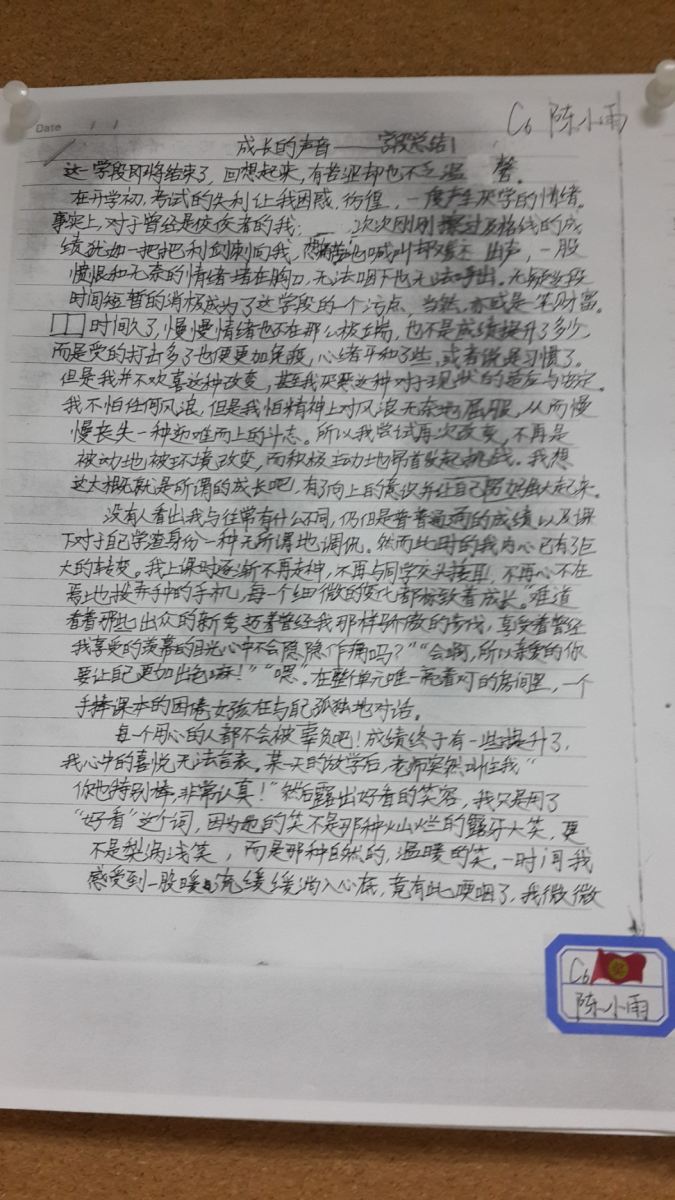 Date / /
C6 陈小雨
成长的声音——学段总结1
这一学段即将结束了，回想起来，有苦涩却也不乏温馨。
在开学初，考试的失利让我困惑，彷徨，一度产生厌学的情绪。
事实上，对于曾经是佼佼者的我，次次刚刚擦过及格线的成
绩犹如一把把利剑刺向我，想喊叫却出声，一股
愤恨和无奈的情绪堵在胸口，无法咽下也无法呼出。无疑这段
时间短暂的消极成为了这学段的一个污点，当然，亦或是笔财富。
时间久了，慢慢情绪也不在那么极端，也不是成绩提升了多少，
而是受的打击多了也便更加免疫，心绪平和了些，或者说是习惯了。
但是我并不欢喜这种改变，甚至我厌恶这种对于现状的适应与否定。
我不怕任何风浪，但是我怕精神上对风浪无奈地屈服，从而慢
慢丧失一种迎难而上的斗志。所以我尝试再次改变，不再是
被动地被环境改变，而积极主动地昂首发起挑战。我想
这大概就是所谓的成长吧，有了向上的意识并让自己努力强大起来。
没有人看出我与往常有什么不同，仍但是普普通通的成绩以及课
下对于自己学渣身份一种无所谓地调侃。然而此时的我内心已有了巨
大的转变。我上课时逐渐不再走神，不再与同学交头接耳，不再心不在
焉地按弄手中的手机，每一个细微的变化都标致着成长。“难道
看着那些出众的新秀迈着曾经我那样骄傲的步伐，享受着曾经
我享受的羡慕的目光心中不会隐隐作痛吗？”“会啊，所以亲爱的你
要让自己更加出色嘛！”“嗯”。在整个单元唯一亮着灯的房间里，一个
手捧课本的困倦女孩在与自己孤独地对话。
每一个用心的人都不会被辜负吧！成绩终于有一些提升了，
我心中的喜悦无法言表。某一天的放学后，老师突然叫住我“
你也特别棒，非常认真！”然后露出好看的笑容，我只是用了
“好看”这个词，因为她的笑不是那种灿烂的露牙大笑，更
不是梨涡浅笑，而是那种自然的，温暖的笑。一时间我
感受到一股暖流缓缓淌入心底，竟有些哽咽了，我微微
C6
陈小雨